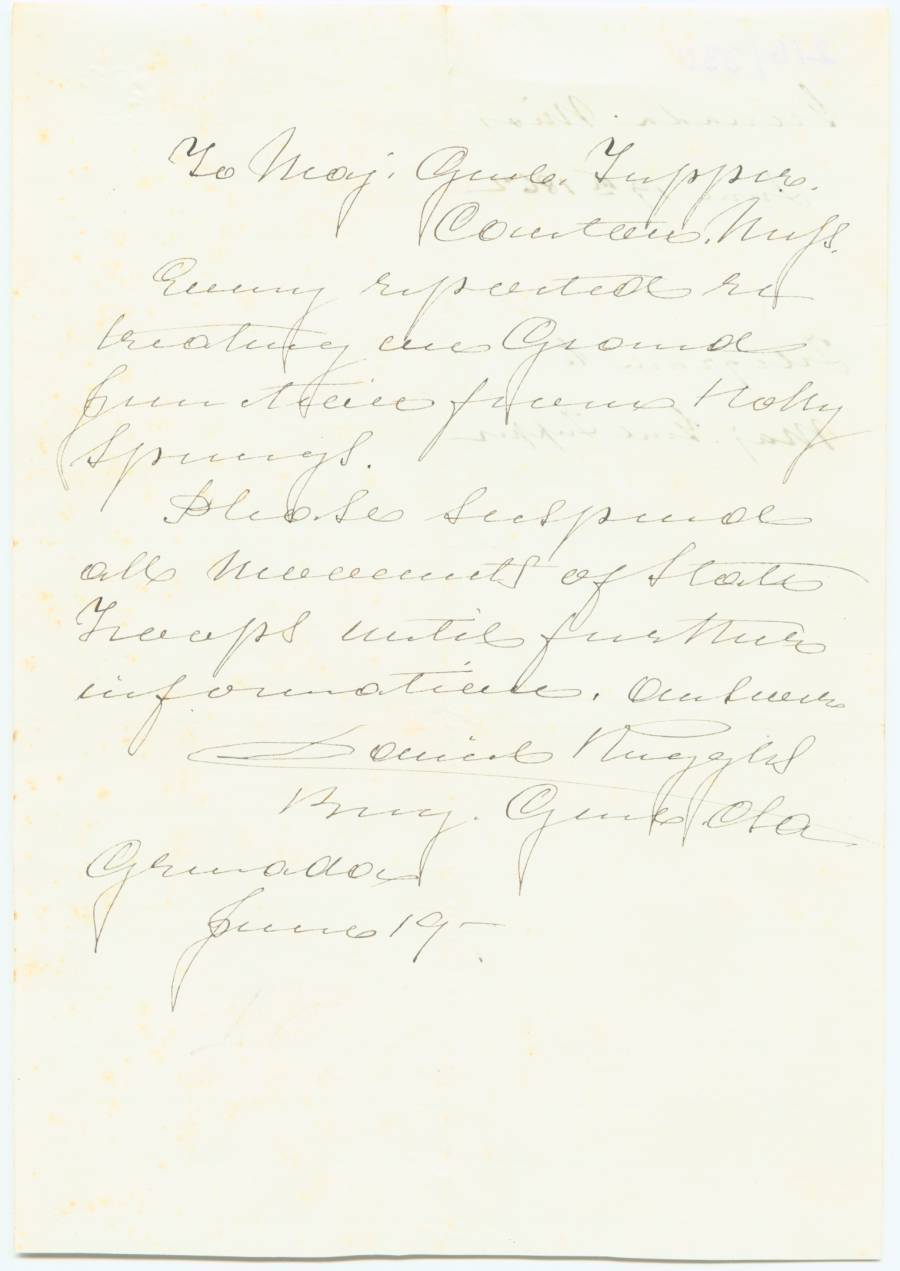 To Maj. Genl. Tupper.
Canton. Miss.
Enemy reported re
treating on Grand
Junction from Holly
Springs.
Please suspend
all movements of State
Troops until further
information. Answer
Daniel Ruggles
Brig. Genl. CSA
Grenada
June 19